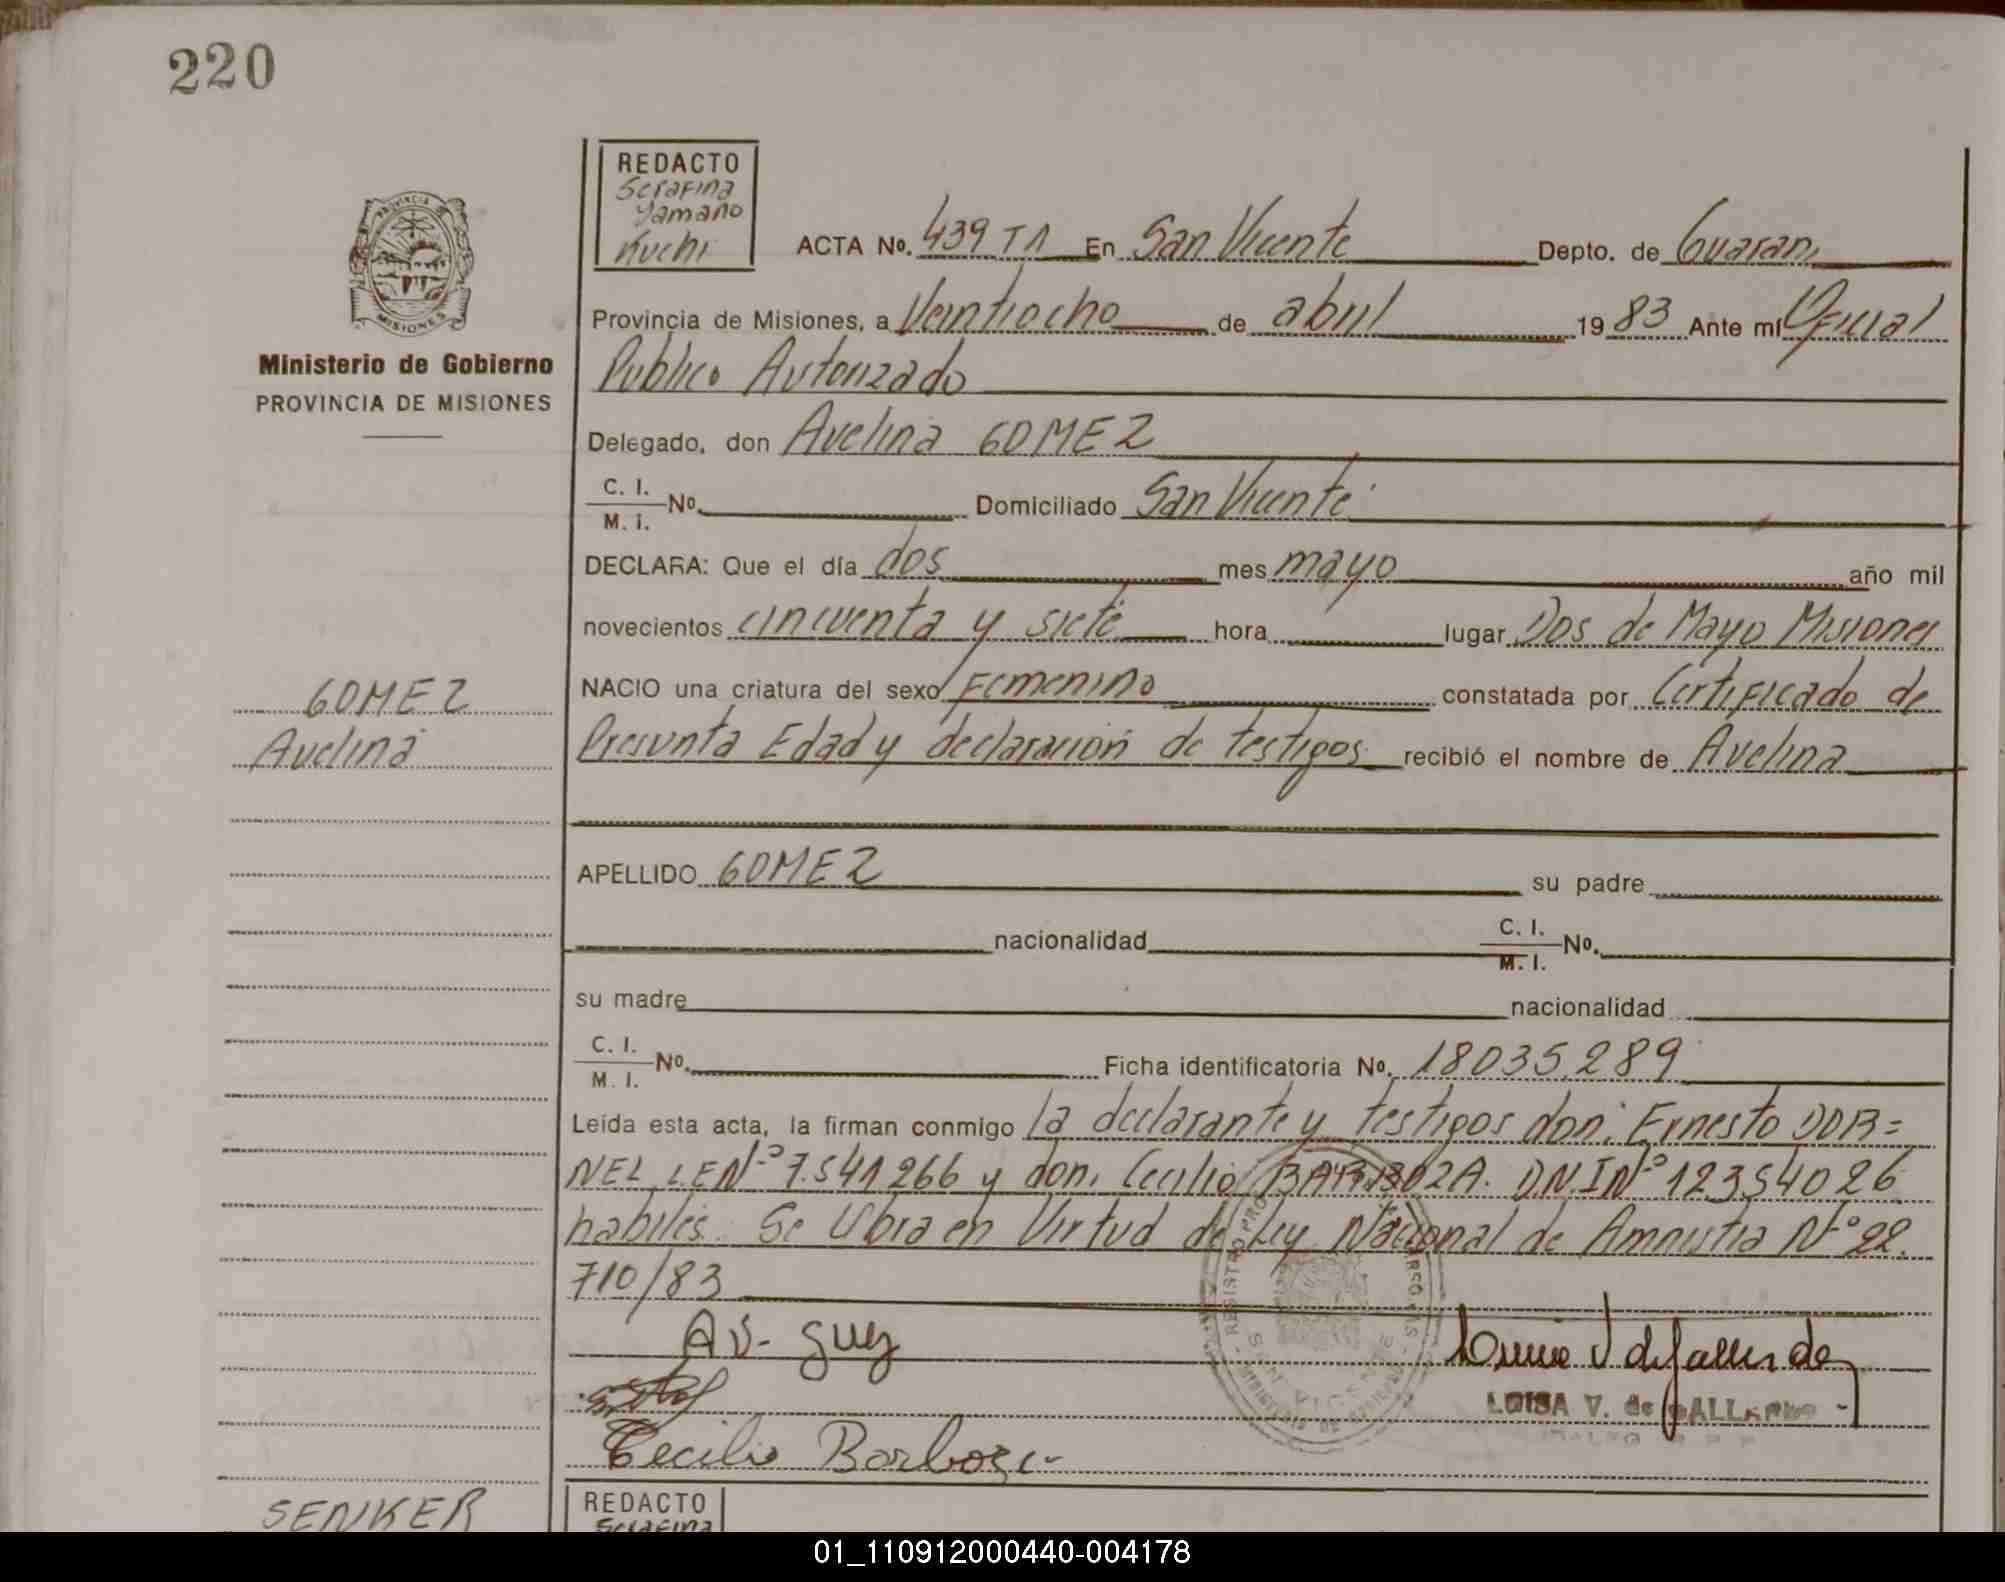 220
REDACTO
Serafina
Yamaño
Kuchi
PROVINCIA DE
MISIONES
Ministerio de Gobierno
PROVINCIA DE MISIONES
ACTA No. 439 TA En San Vicente Depto. de Guarani
Provincia de Misiones, a Veintiocho de abril 19 83 Ante mí Oficial
Publico Autorizado
Delegado, don Avelina GOMEZ
C. I. / M. I. No. Domiciliado San Vicente
DECLARA: Que el día dos mes mayo año mil
novecientos cincuenta y siete hora lugar Dos de Mayo Misiones
GOMEZ
Avelina
NACIO una criatura del sexo Femenino constatada por Certificado de
Presunta Edad y declaración de testigos recibió el nombre de Avelina
APELLIDO GOMEZ su padre
nacionalidad C. I. / M. I. No.
su madre nacionalidad
C. I. / M. I. No. Ficha identificatoria No. 18035.289
Leída esta acta, la firman conmigo la declarante y testigos don: Ernesto DOR=
NEL L.E Nº 7.541.266 y don. Cecilio BARBOZA. D.N.I Nº 12354026
habiles. Se Ubra en Virtud de Ley Nacional de Amnistia Nº 22.
710/83
Av- guz
Cecilio Barboza-
LUISA V. de GALLARDO
SENKER
REDACTO
Serafina
01_110912000440-004178